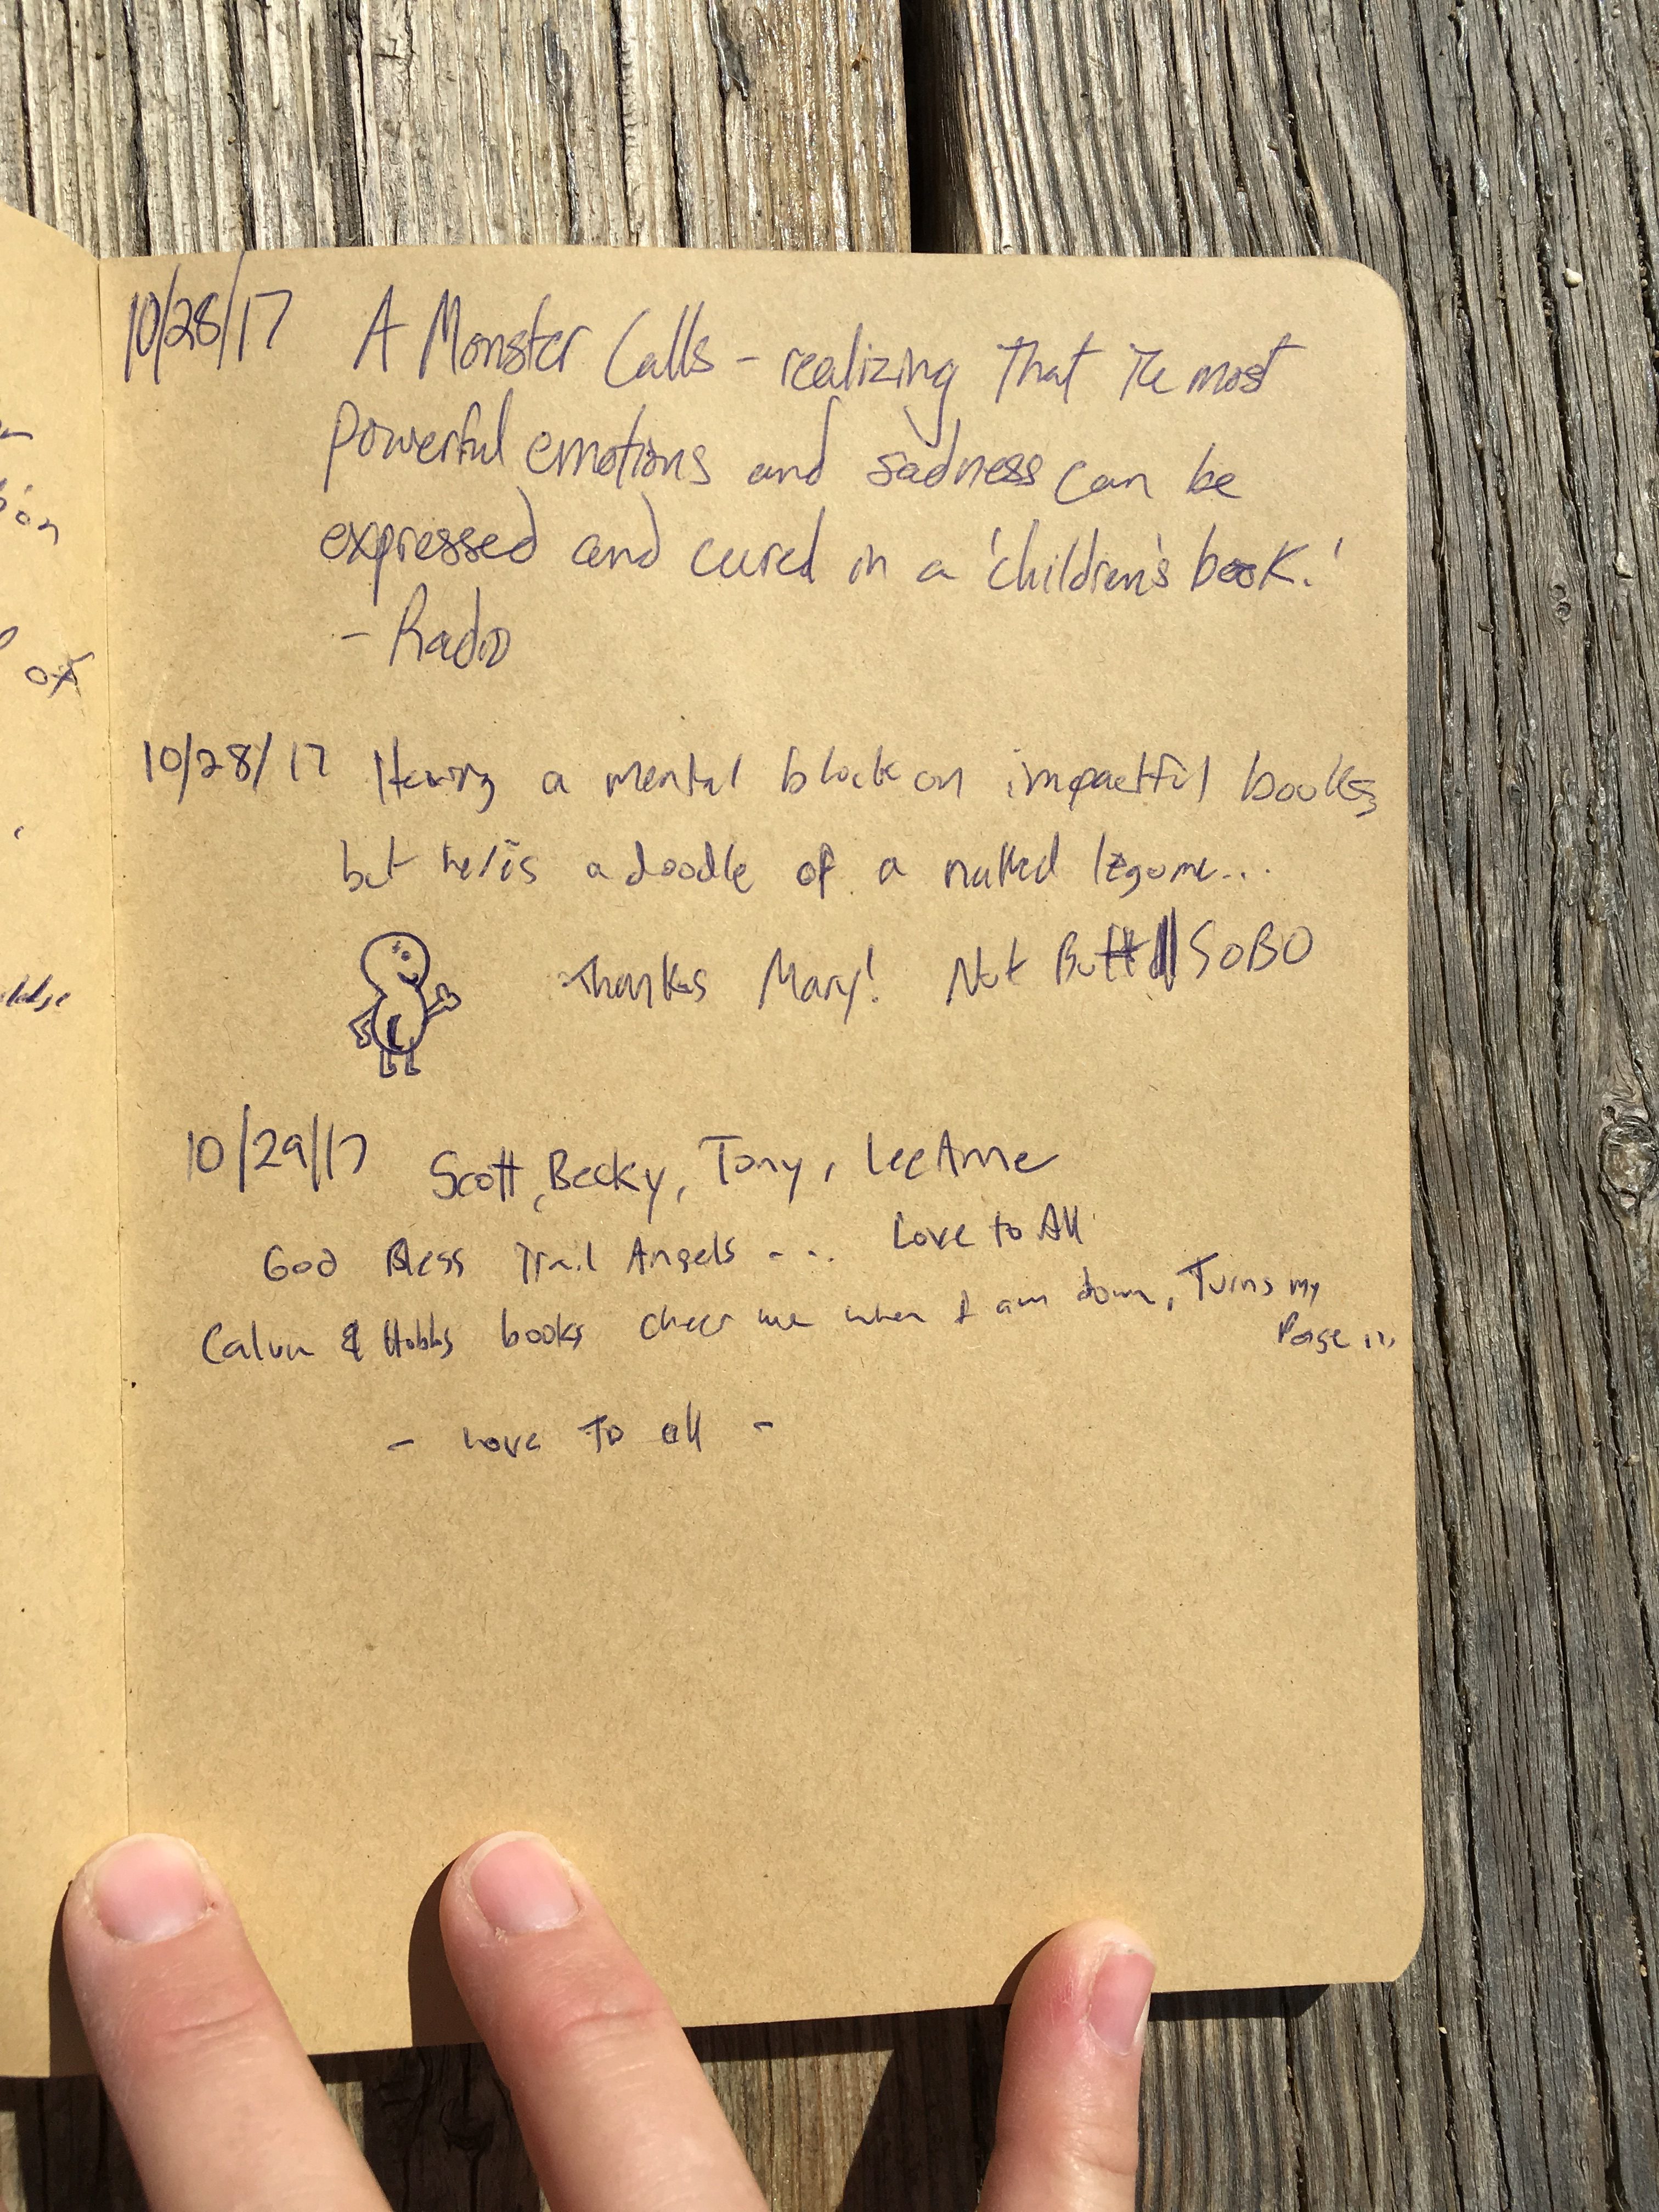 on
ox
10/28/17 A Monster Calls - realizing that the most
powerful emotions and sadness can be
expressed and cured in a 'children's book.'
- Radio
10/28/17 Having a mental block on impactful books
but here is a doodle of a naked legume...
Thanks Mary! Nut Butt SOBO
10/29/17 Scott, Becky, Tony, LeeAnne
God Bless Trail Angels ... Love to All
Calvin & Hobbs books cheer me when I am down, Turns my
Page ...
- Love To all -